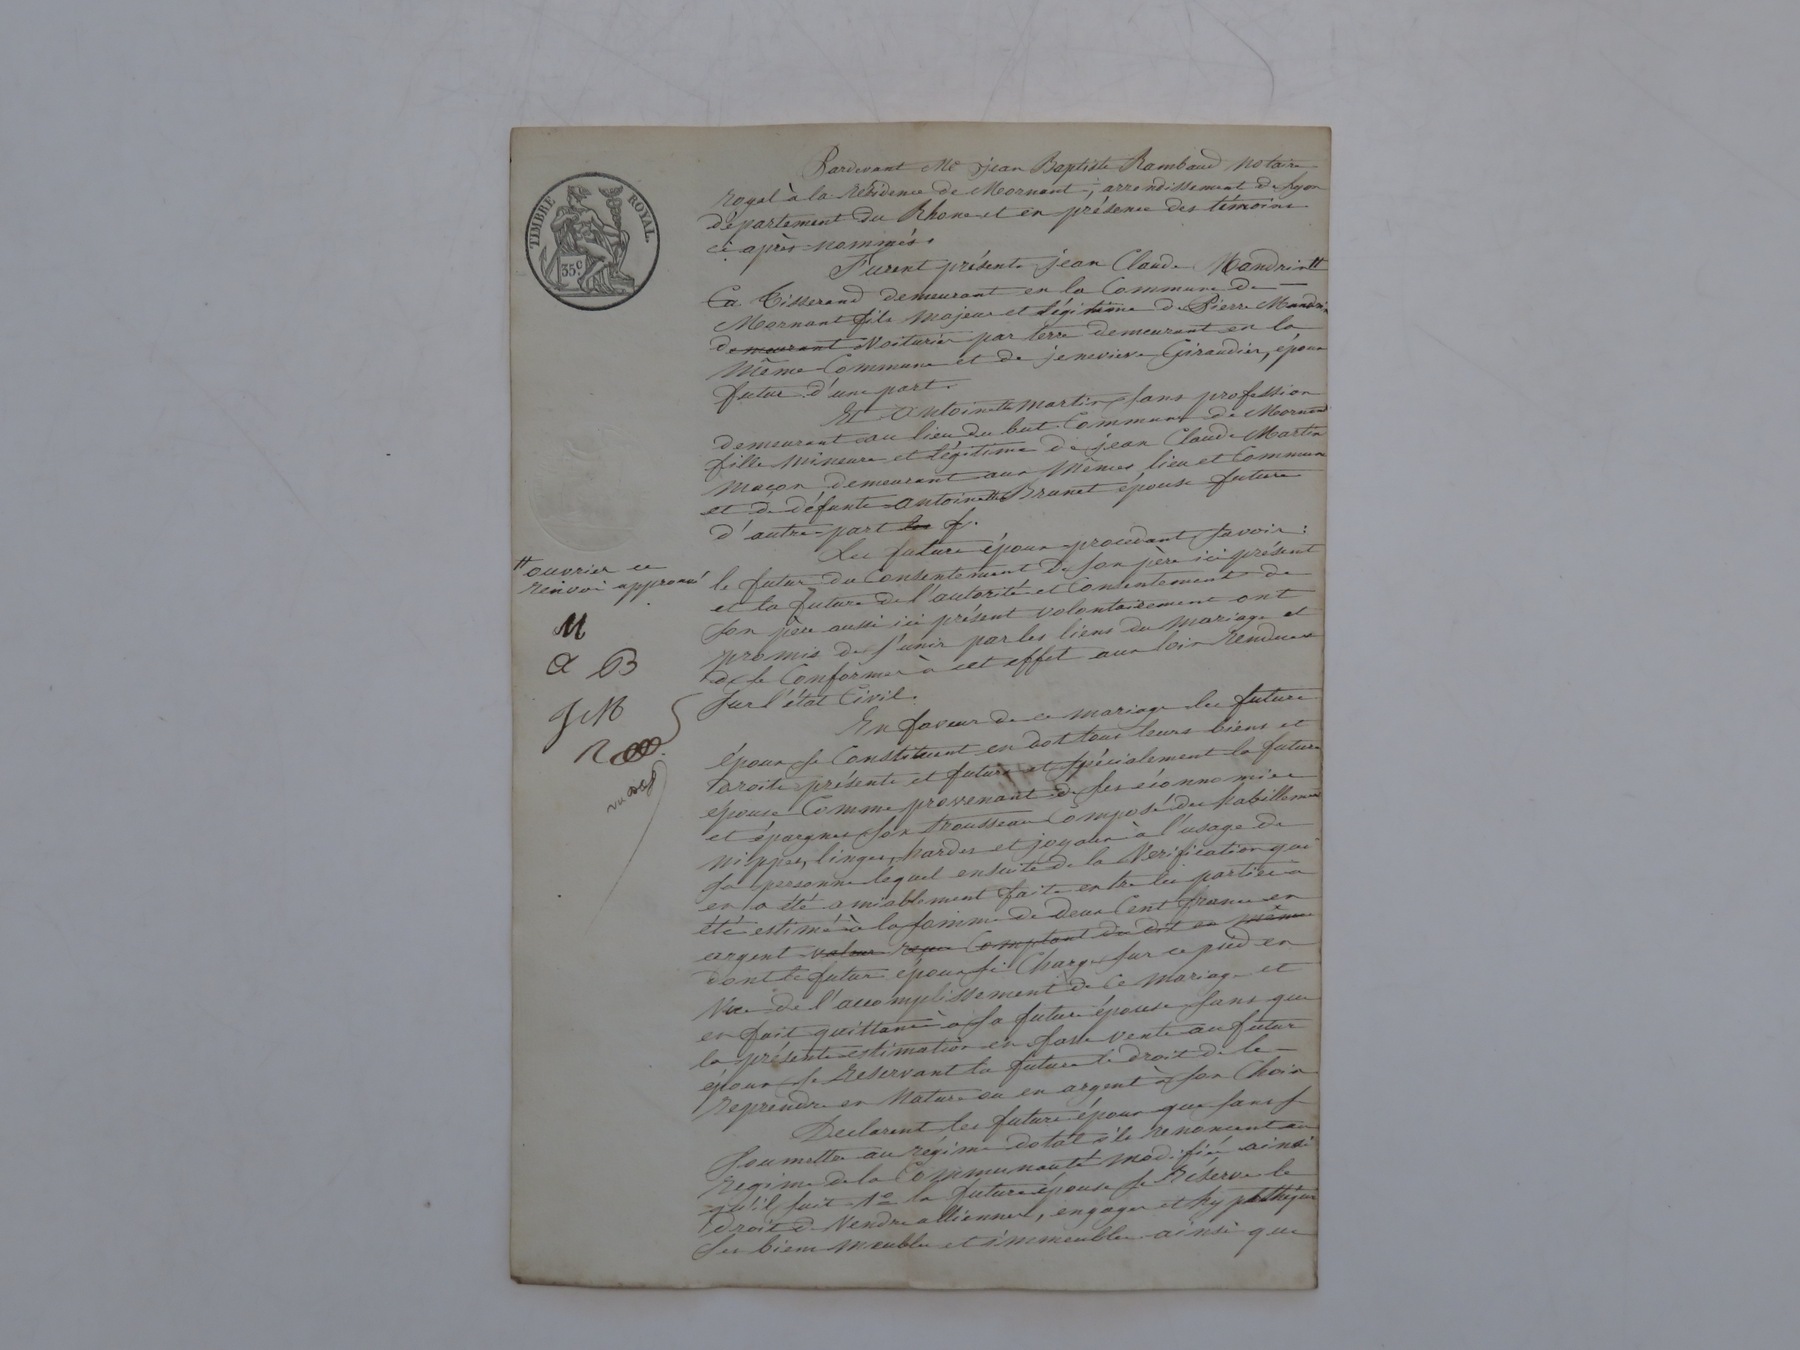 TIMBRE ROYAL.
35c
Pardevant Me jean Baptiste Rambaud notaire
royal à la résidence de Mornant, arrondissement de Lyon
département du Rhone et en présence des témoins
ci après nommés.
Furent présents jean Claude Mandrin #
Tisserand demeurant en la Commune de
Mornant fils majeur et légitime de Pierre Mandrin
demeurant Voiturier par terre demeurant en la
même Commune et de jenevieve Giraudier, époux
futur d'une part.
Et Antoinette martin sans profession
demeurant au lieu du but Commune de Mornant
fille mineure et légitime de jean Claude Martin
maçon demeurant aux mêmes lieu et Commune
et de défunte Antoinette Brunet épouse future
d'autre part
Les futurs époux procedant savoir :
le futur du Consentement de son père ici présent
et la future de l'autorité et Consentement de
son père aussi ici présent volontairement ont
promis de s'unir par les liens du mariage et
de se Conformer à cet effet aux loix rendues
sur l'état Civil.
En faveur de ce mariage les futurs
époux se Constituent en dot tous leurs biens et
droits présents et futurs et spécialement la future
epouse Comme provenant de ses éconnomies
et épargnes son trousseau Composé des habillements
nippes, linges, hardes et joyaux à l'usage de
sa personne lequel ensuite de la Verification qui
en a été amiablement faite entre les parties a
été estimé à la somme de deux Cent francs en
argent valeur reçue Comptant du dit en même
dont le futur époux se Charge sur ce pied en
Vue de l'accomplissement de Ce mariage et
en fait quittance à sa future épouse sans que
la présente estimation en fasse vente au futur
époux se reservant la future le droit de le
reprendre en nature ou en argent à son Choix
Declarent les futurs époux que sans s
soumettre au régime dotal ils renoncent au
regime de la Communauté modifiée ainsi
qu'il suit 1o la future épouse se Réserve le
droit de Vendre allienner, engager et hypothéquer
ses biens meubles et immeubles ainsi que
# ouvrier ce
renvoi approuvé
M
a B
JCM
R